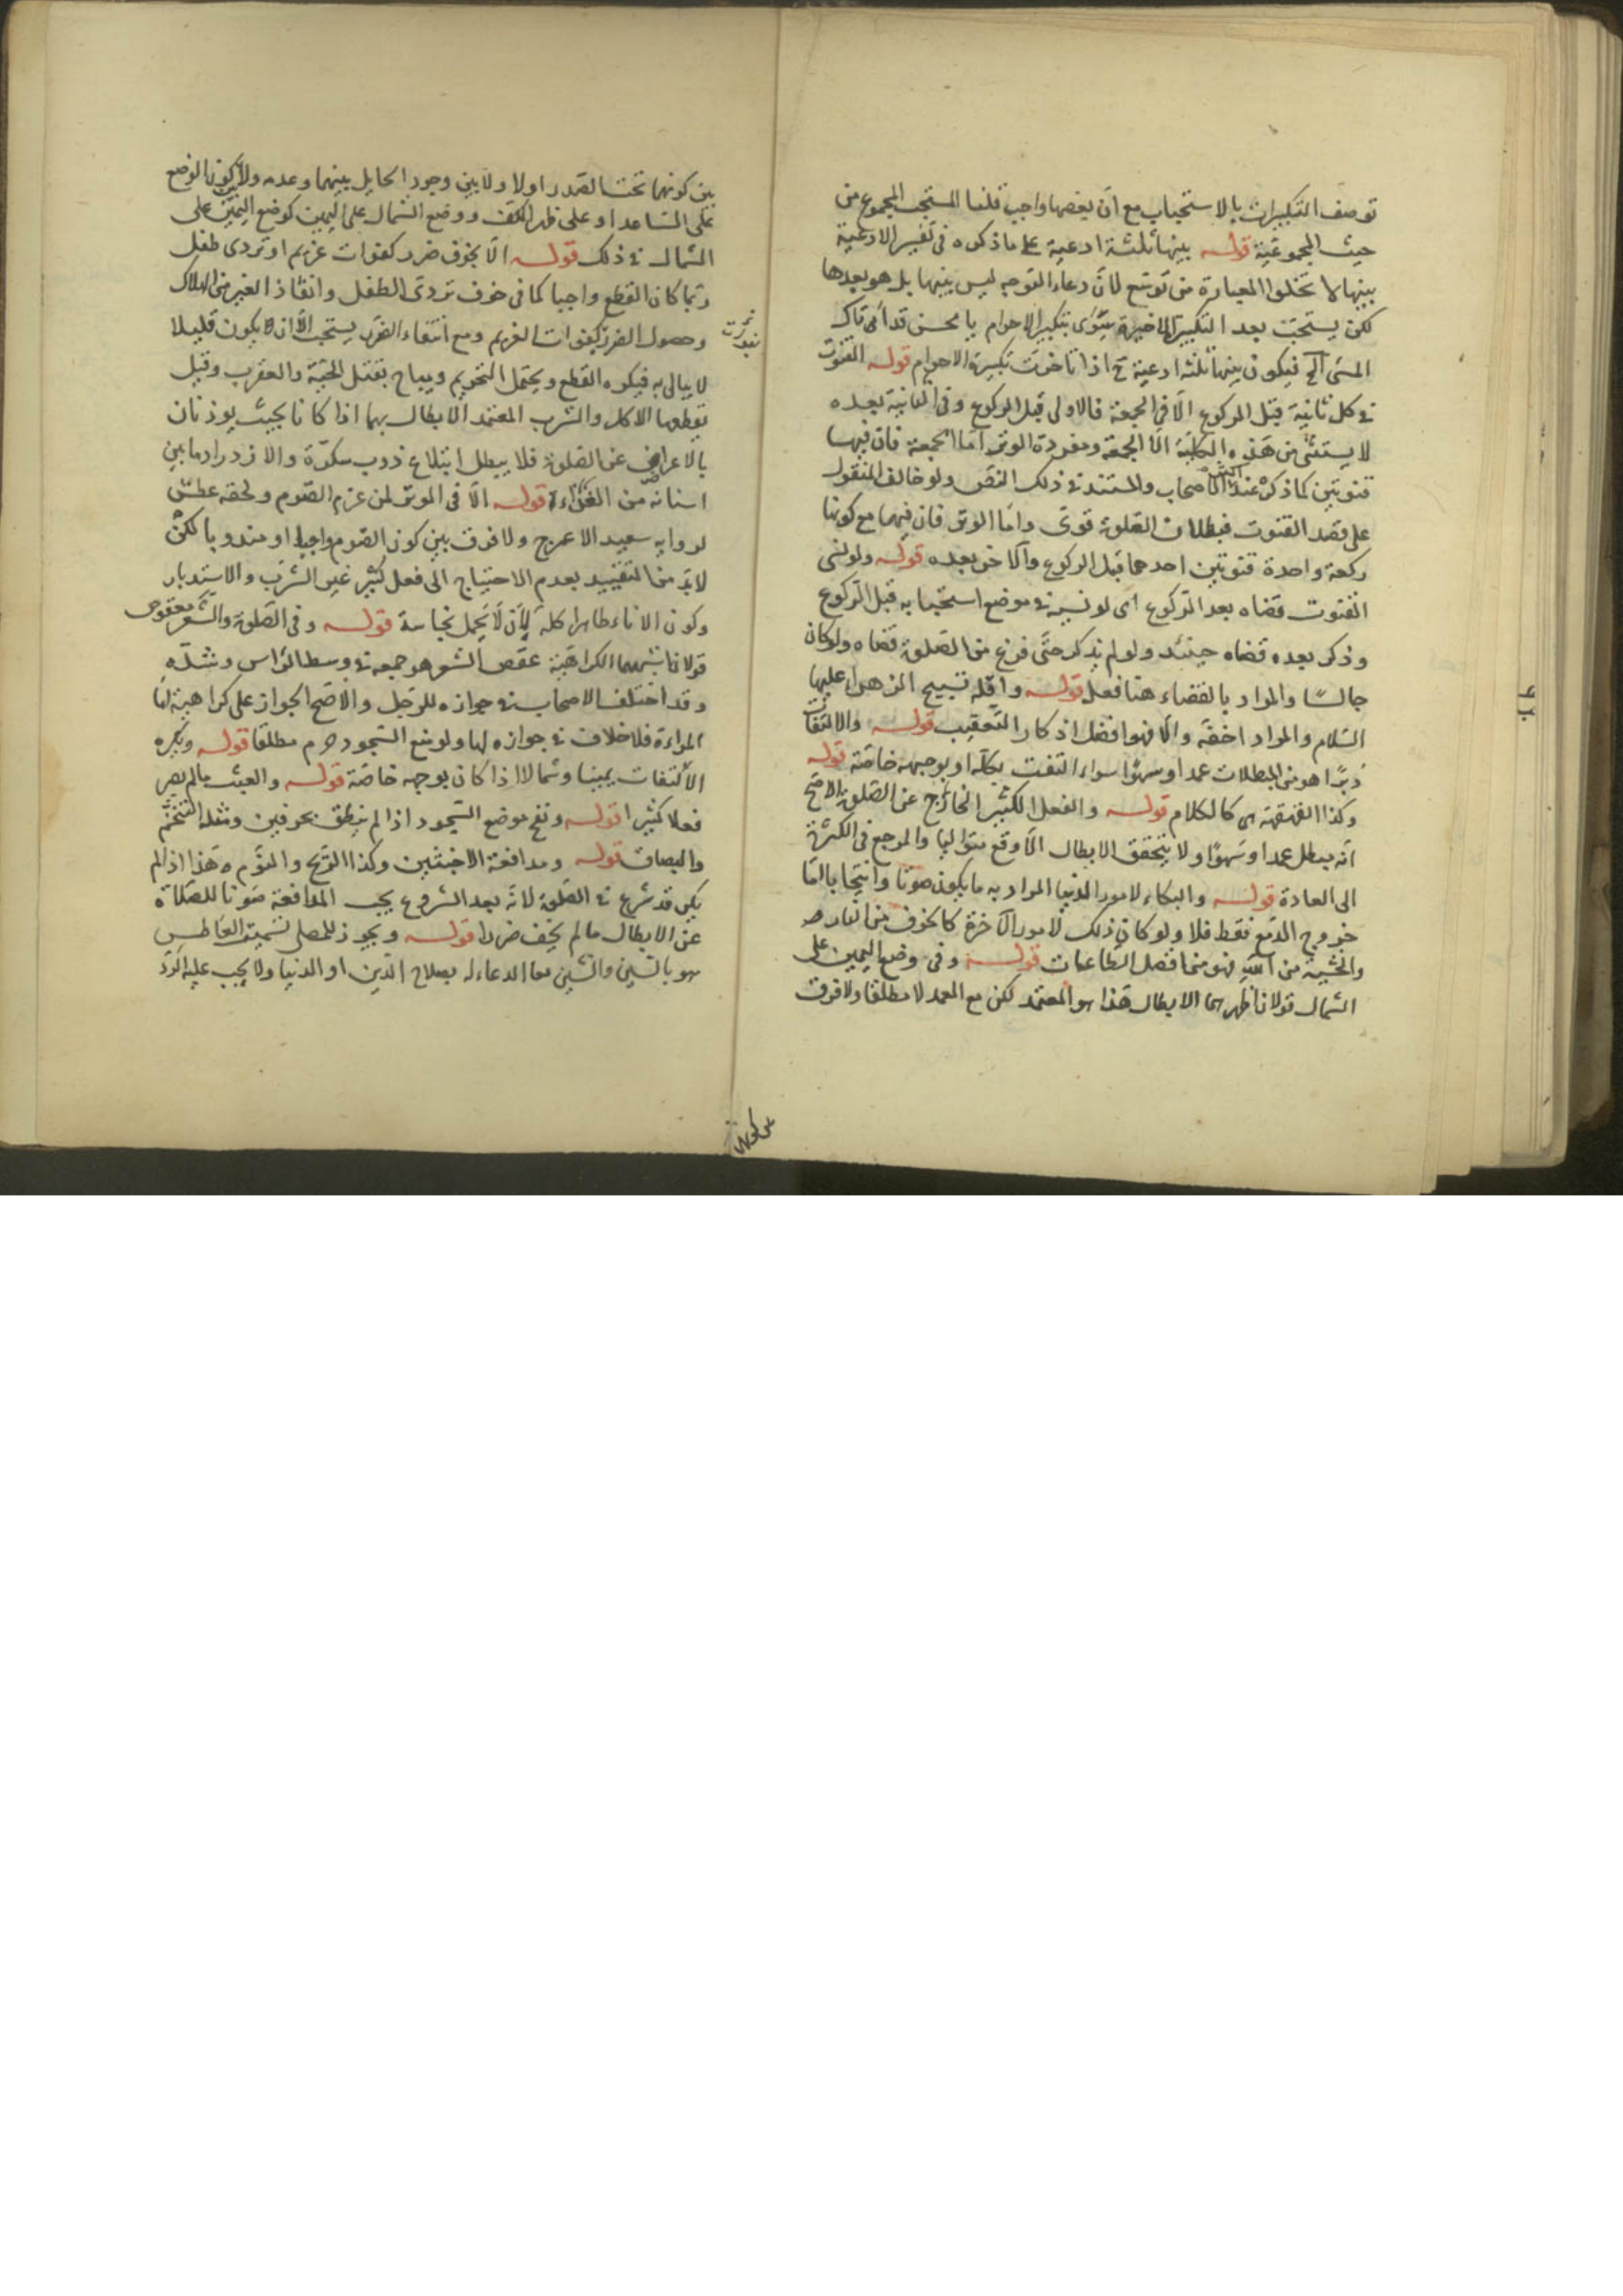 توصف التكبيرات بالاستحباب مع ان بعضها واجب قلنا المستحب المجموع من
حيث المجموعية قوله بينها ثلثة ادعية على ما ذكره في تفسير الادعية
بينها لا تخلوا العبارة من توسع لان دعاء التوجه ليس بينها بل هو بعدها
لكن يستحب بعد التكبيرة الاخيرة سوى تكبير الاحرام يا محسن قد اتاك
المسئ الخ فيكون بينها ثلثه ادعية ح اذا تاخرت تكبيرة الاحرام قوله القنوت
في كل ثانية قبل الركوع الا في الجمعة فالاولى قبل الركوع وفي الثانية بعده
لا يستثنى من هذه الكلية الا الجمعة ومفردة الوتر اما الجمعة فان فيها
قنوتين كما ذكر عند اكثر الاصحاب والمستند في ذلك النص ولو خالف المنقول
على قصد القنوت فبطلان الصلوة قوى واما الوتر فان فيها مع كونها
ركعة واحدة قنوتين احدهما قبل الركوع والاخر بعده قوله ولو نسى
القنوت قضاه بعد الركوع اى لو نسيه في موضع استحبابه قبل الركوع
وذكر بعده قضاه حينئذ ولو لم يذكر حتى فرغ من الصلوة قضاه ولو كان
جالسا والمراد بالقضاء هنا فعله قوله واقله تسبيح الزهراء عليها
السلام والمراد اخفه والا فهو افضل اذكار التعقيب قوله والالتفات
دبرا هو من المبطلات عمدا وسهوا سواء التفت بكله او بوجهه خاصة قوله
وكذا القهقهة هى كالكلام قوله والفعل الكثير الخارج عن الصلوة الاصح
انه يبطل عمدا وسهوا ولا يتحقق الابطال الا وقع متواليا والمرجع في الكثرة
الى العادة قوله والبكاء لامور الدنيا المراد به ما يكون صوتا وانتحابا اما
خروج الدمع فقط فلا ولو كان ذلك لامور الاخرة كالخوف من النار
والخشية من الله فهو من افضل الطاعات قوله وفي وضع اليمين على
الشمال قولان اظهرهما الابطال هذا هو المعتمد لكن مع العمد لا مطلقا ولا فرق
بين كونهما تحت الصدر اولا ولا بين وجود الحايل بينهما وعدمه ولا بين كون الوضع
على الساعد او على ظهر الكف ووضع الشمال على اليمين كوضع اليمين على
الشمال في ذلك قوله الا بخوف ضرر كفوات غريم او تردى طفل
ربما كان القطع واجبا كما في خوف تردى الطفل وانقاذ الغير من الهلاك
وحصول الضرر بفوات الغريم ومع انتفاء الضرر يستحب الا ان يكون قليلا
لا يبالى به فيكره القطع ويحتمل التحريم ويباح بقتل الحية والعقرب وقيل
يقطعها الاكل والشرب المعتمد الابطال بهما اذا كانا بحيث يوذنان
بالاعراض عن الصلوة فلا يبطل ابتلاع ذوب سكرة والازدراد ما بين
اسنانه من الغذاء قوله الا في الوتر لمن عزم الصوم ولحقه عطش
لرواية سعيد الاعرج ولا فرق بين كون الصوم واجبا او مندوبا لكن
لابد من التقييد بعدم الاحتياج الى فعل كثير غير الشرب والاستدبار
وكون الاناء طاهرا كله لان لا يحمل نجاسة قوله وفي الصلوة والشعر معقوص
قولان اشبههما الكراهية عقص الشعر هو جمعه في وسط الراس وشده
وقد اختلف الاصحاب في جوازه للرجل والاصح الجواز على كراهية اما
المراءة فلا خلاف في جوازه لها ولو منع السجود حرم مطلقا قوله ويكره
الالتفات يمينا وشمالا اذا كان بوجهه خاصة قوله والعبث ما لم يصر
فعلا كثيرا قوله ونفخ موضع السجود اذا لم ينطق بحرفين ومثله التنخم
والبصاق قوله ومدافعة الاخبثين وكذا الريح والنوم وهذا اذا لم
يكن قد شرع في الصلوة لانه بعد الشروع يجب المدافعة صونا للصلاة
عن الابطال ما لم يخف ضررا قوله ويجوز للمصلى تسميت العاطس
هو بالسين والشين معا الدعاء له بصلاح الدين او الدنيا ولا يجب عليه الرد